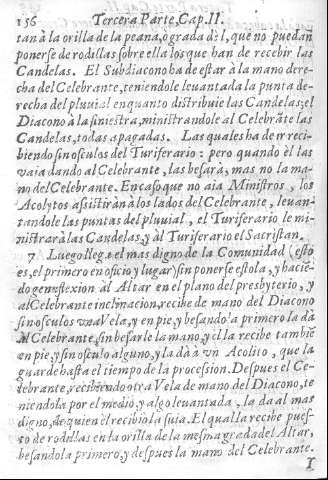 156 Tercera Parte, Cap. II.
tan à la orilla de la peana, ò grada dèl, que no puedan
ponerse de rodillas sobre ella los que han de recebir las
Candelas. El Subdiacono ha de estàr à la mano dere-
cha del Celebrante, teniendole levantada la punta de-
recha del pluvial en quanto distribuie las Candelas; el
Diacono à la siniestra, ministrandole al Celebrãte las
Candelas, todas apagadas. Las quales ha de ir reci-
biendo sin osculos del Turiferario: pero quando èl las
vaia dando al Celebrante, las besarà, mas no la ma-
no del Celebrante. En caso que no aia Ministros, los
Acolytos assistiràn à los lados del Celebrante, levan-
tandole las puntas del pluvial, el Turiferario le mi-
nistrarà las Candelas, y àl Turiferario el Sacristan.
7 Luego llega el mas digno de la Comunidad (esto
es, el primero en oficio y lugar) sin ponerse estola, y hacié-
do genuflexion àl Altar en el plano del presbyterio, y
al Celebrante inclinacion, recibe de mano del Diacono
sin osculos una Vela, y en pie, y besando la primero la dà
àl Celebrante, sin besarle la mano, y èl la recibe tambiẽ
en pie, y sin osculo alguno, y la dà à un Acolito, que la
guarde hasta el tiempo de la procesion. Despues el Ce-
lebrante, recibiendo otra Vela de mano del Diacono, te
niendola por el medio, y algo levantada, la dà al mas
digno, de quien èl recibiò la suia. El qual la recibe pues-
to de rodillas en la orilla de la mesma grada del Altar,
besando la primero, y despues la mano del Celebrante.